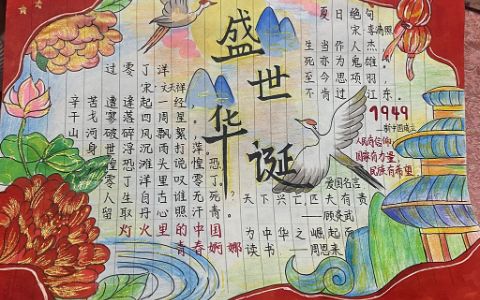 盛世华诞
夏日绝句
宋 李清照
生当作人杰,
死亦为鬼雄。
至今思项羽,
不肯过江东。
过零丁洋
宋 文天祥
辛苦遭逢起一经,
干戈寥落四周星。
山河破碎风飘絮,
身世浮沉雨打萍。
惶恐滩头说惶恐,
零丁洋里叹零丁。
人生自古谁无死?
留取丹心照汗青。
1949
——新中国成立
人民有信仰
国家有力量
民族有希望
爱国名言
天下兴亡匹夫有责
——顾炎武
为中华之崛起而
读书——周恩来